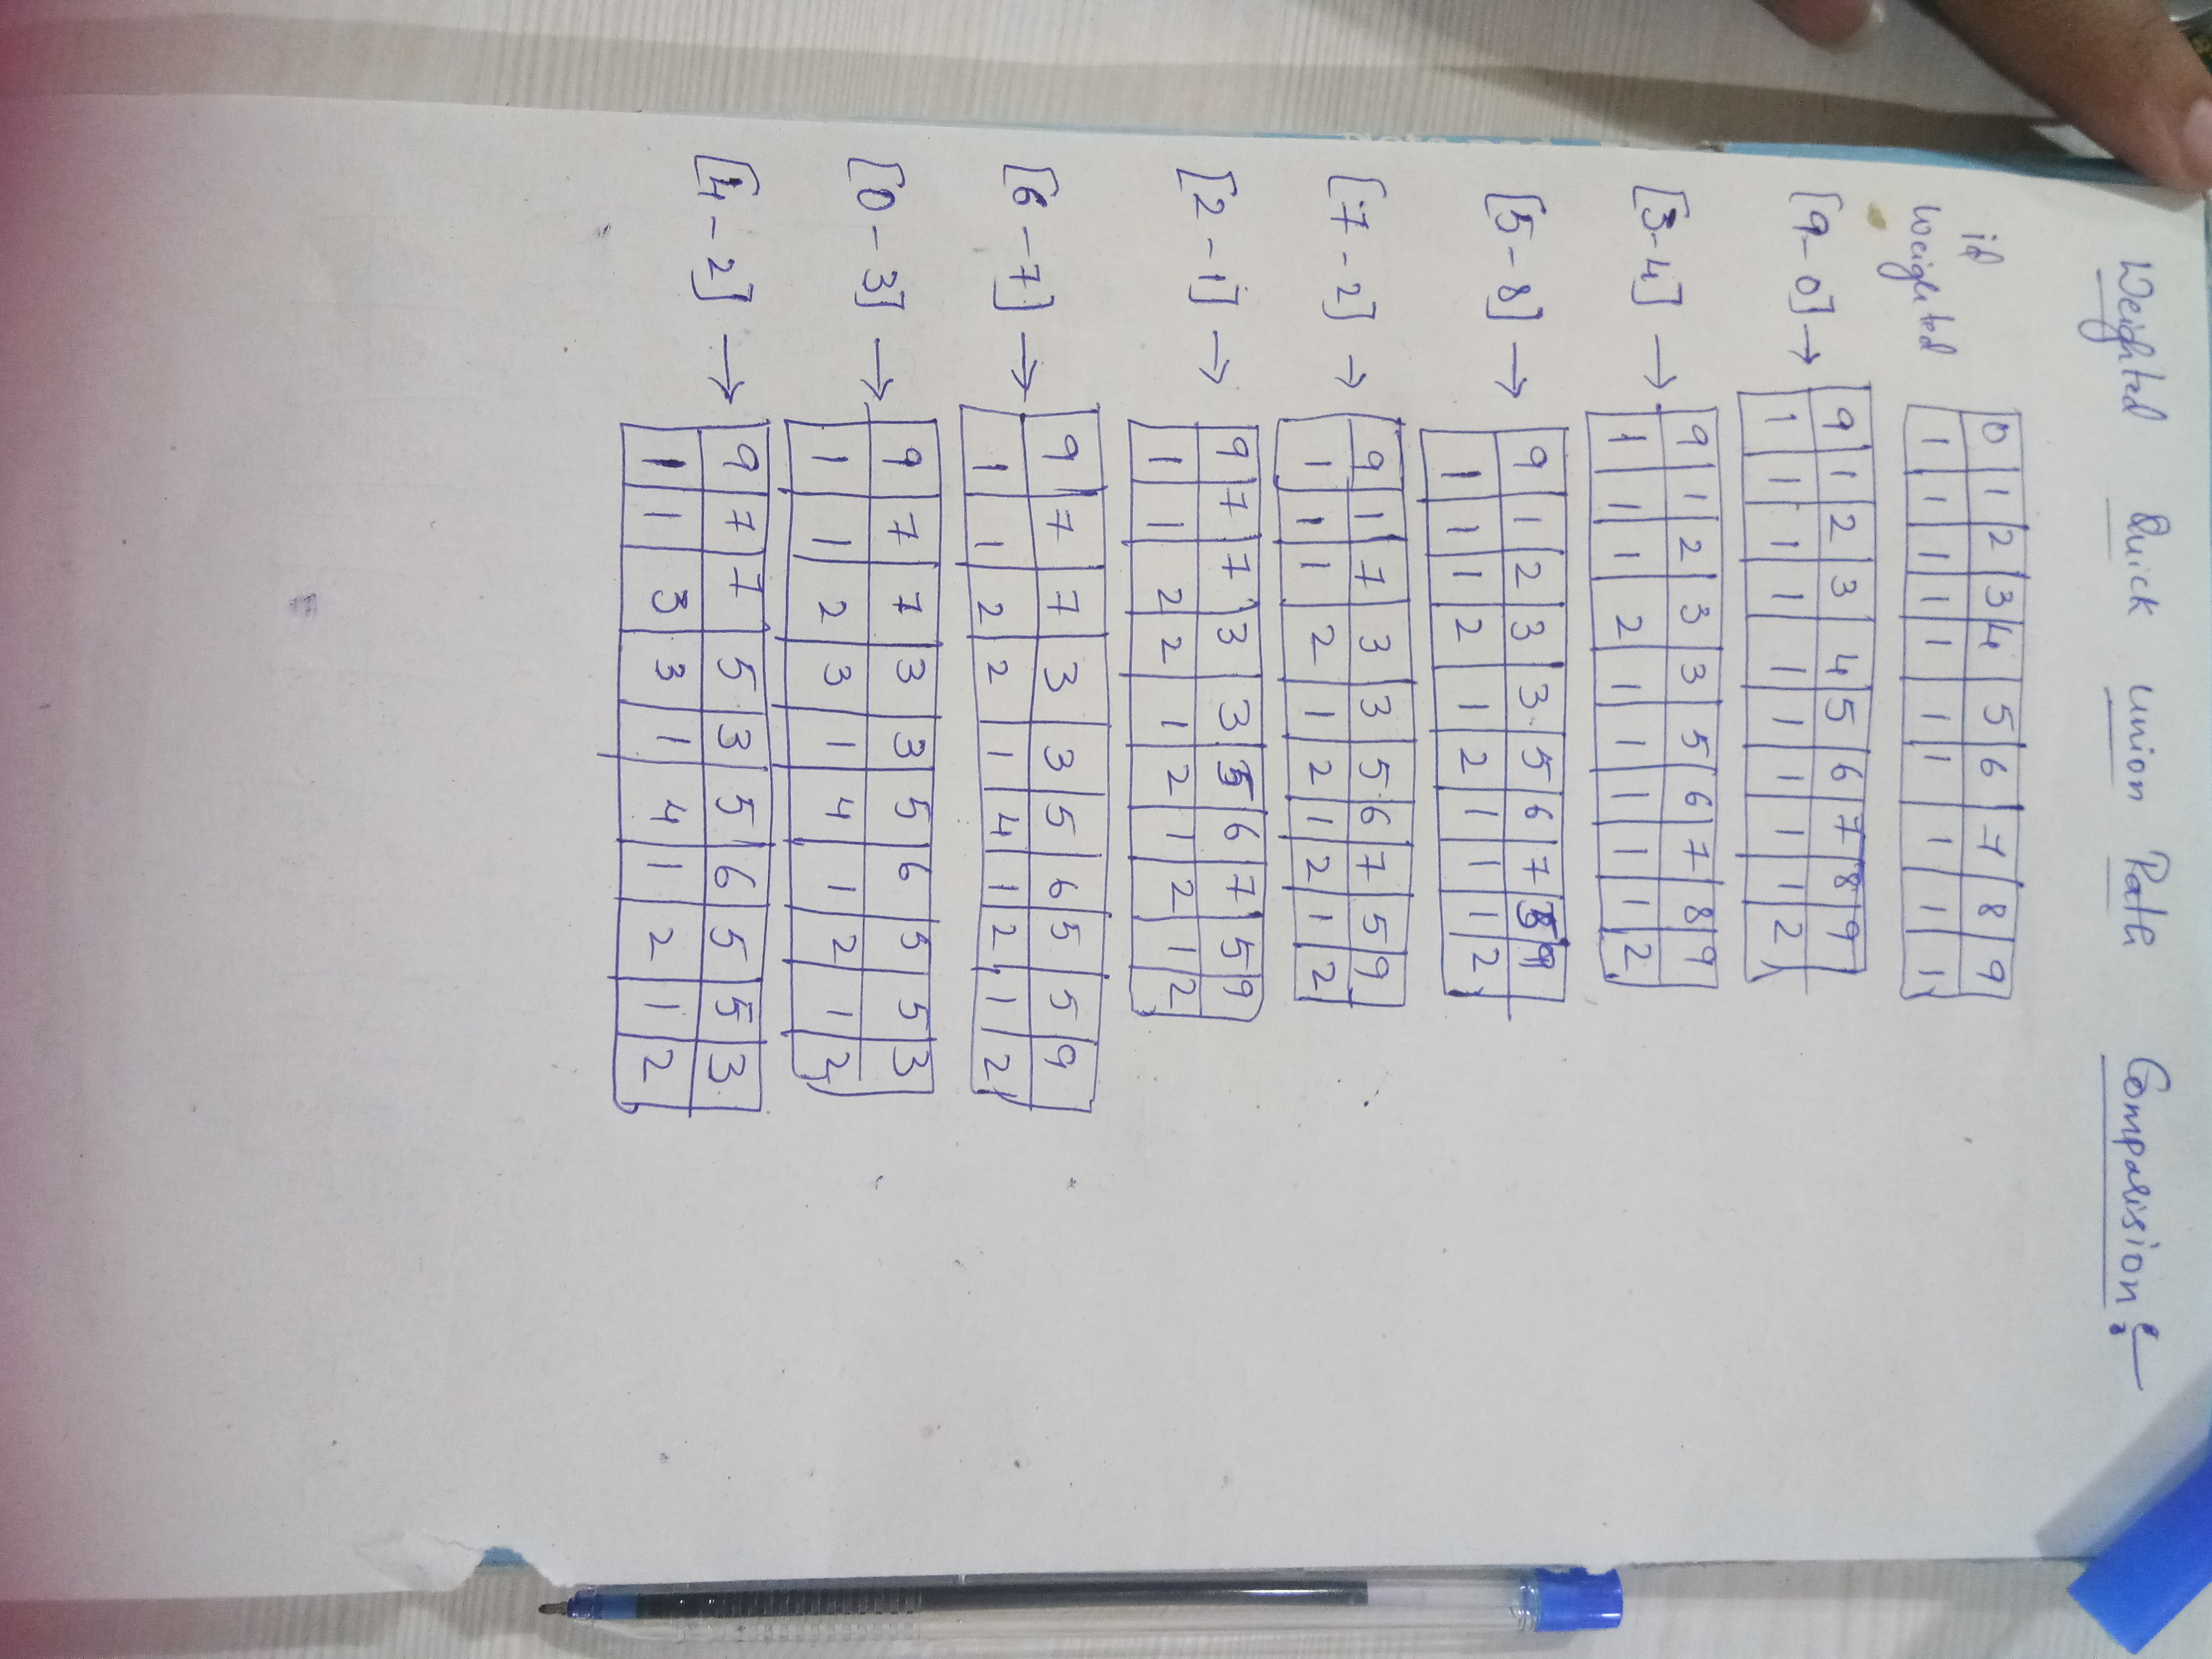 Weighted Quick Union Path Comparision :-
id 0 1 2 3 4 5 6 7 8 9
Weighted 1 1 1 1 1 1 1 1 1 1
[9-0] → 9 1 2 3 4 5 6 7 8 9
1 1 1 1 1 1 1 1 1 2
[3-4] → 9 1 2 3 3 5 6 7 8 9
1 1 1 2 1 1 1 1 1 2
[5-8] → 9 1 2 3 3 5 6 7 5 9
1 1 1 2 1 2 1 1 1 2
[7-2] → 9 1 7 3 3 5 6 7 5 9
1 1 1 2 1 2 1 2 1 2
[2-1] → 9 7 7 3 3 5 6 7 5 9
1 1 2 2 1 2 1 2 1 2
[6-7] → 9 7 7 3 3 5 6 5 5 9
1 1 2 2 1 4 1 2 1 2
[0-3] → 9 7 7 3 3 5 6 5 5 3
1 1 2 3 1 4 1 2 1 2
[4-2] → 9 7 7 5 3 5 6 5 5 3
1 1 3 3 1 4 1 2 1 2